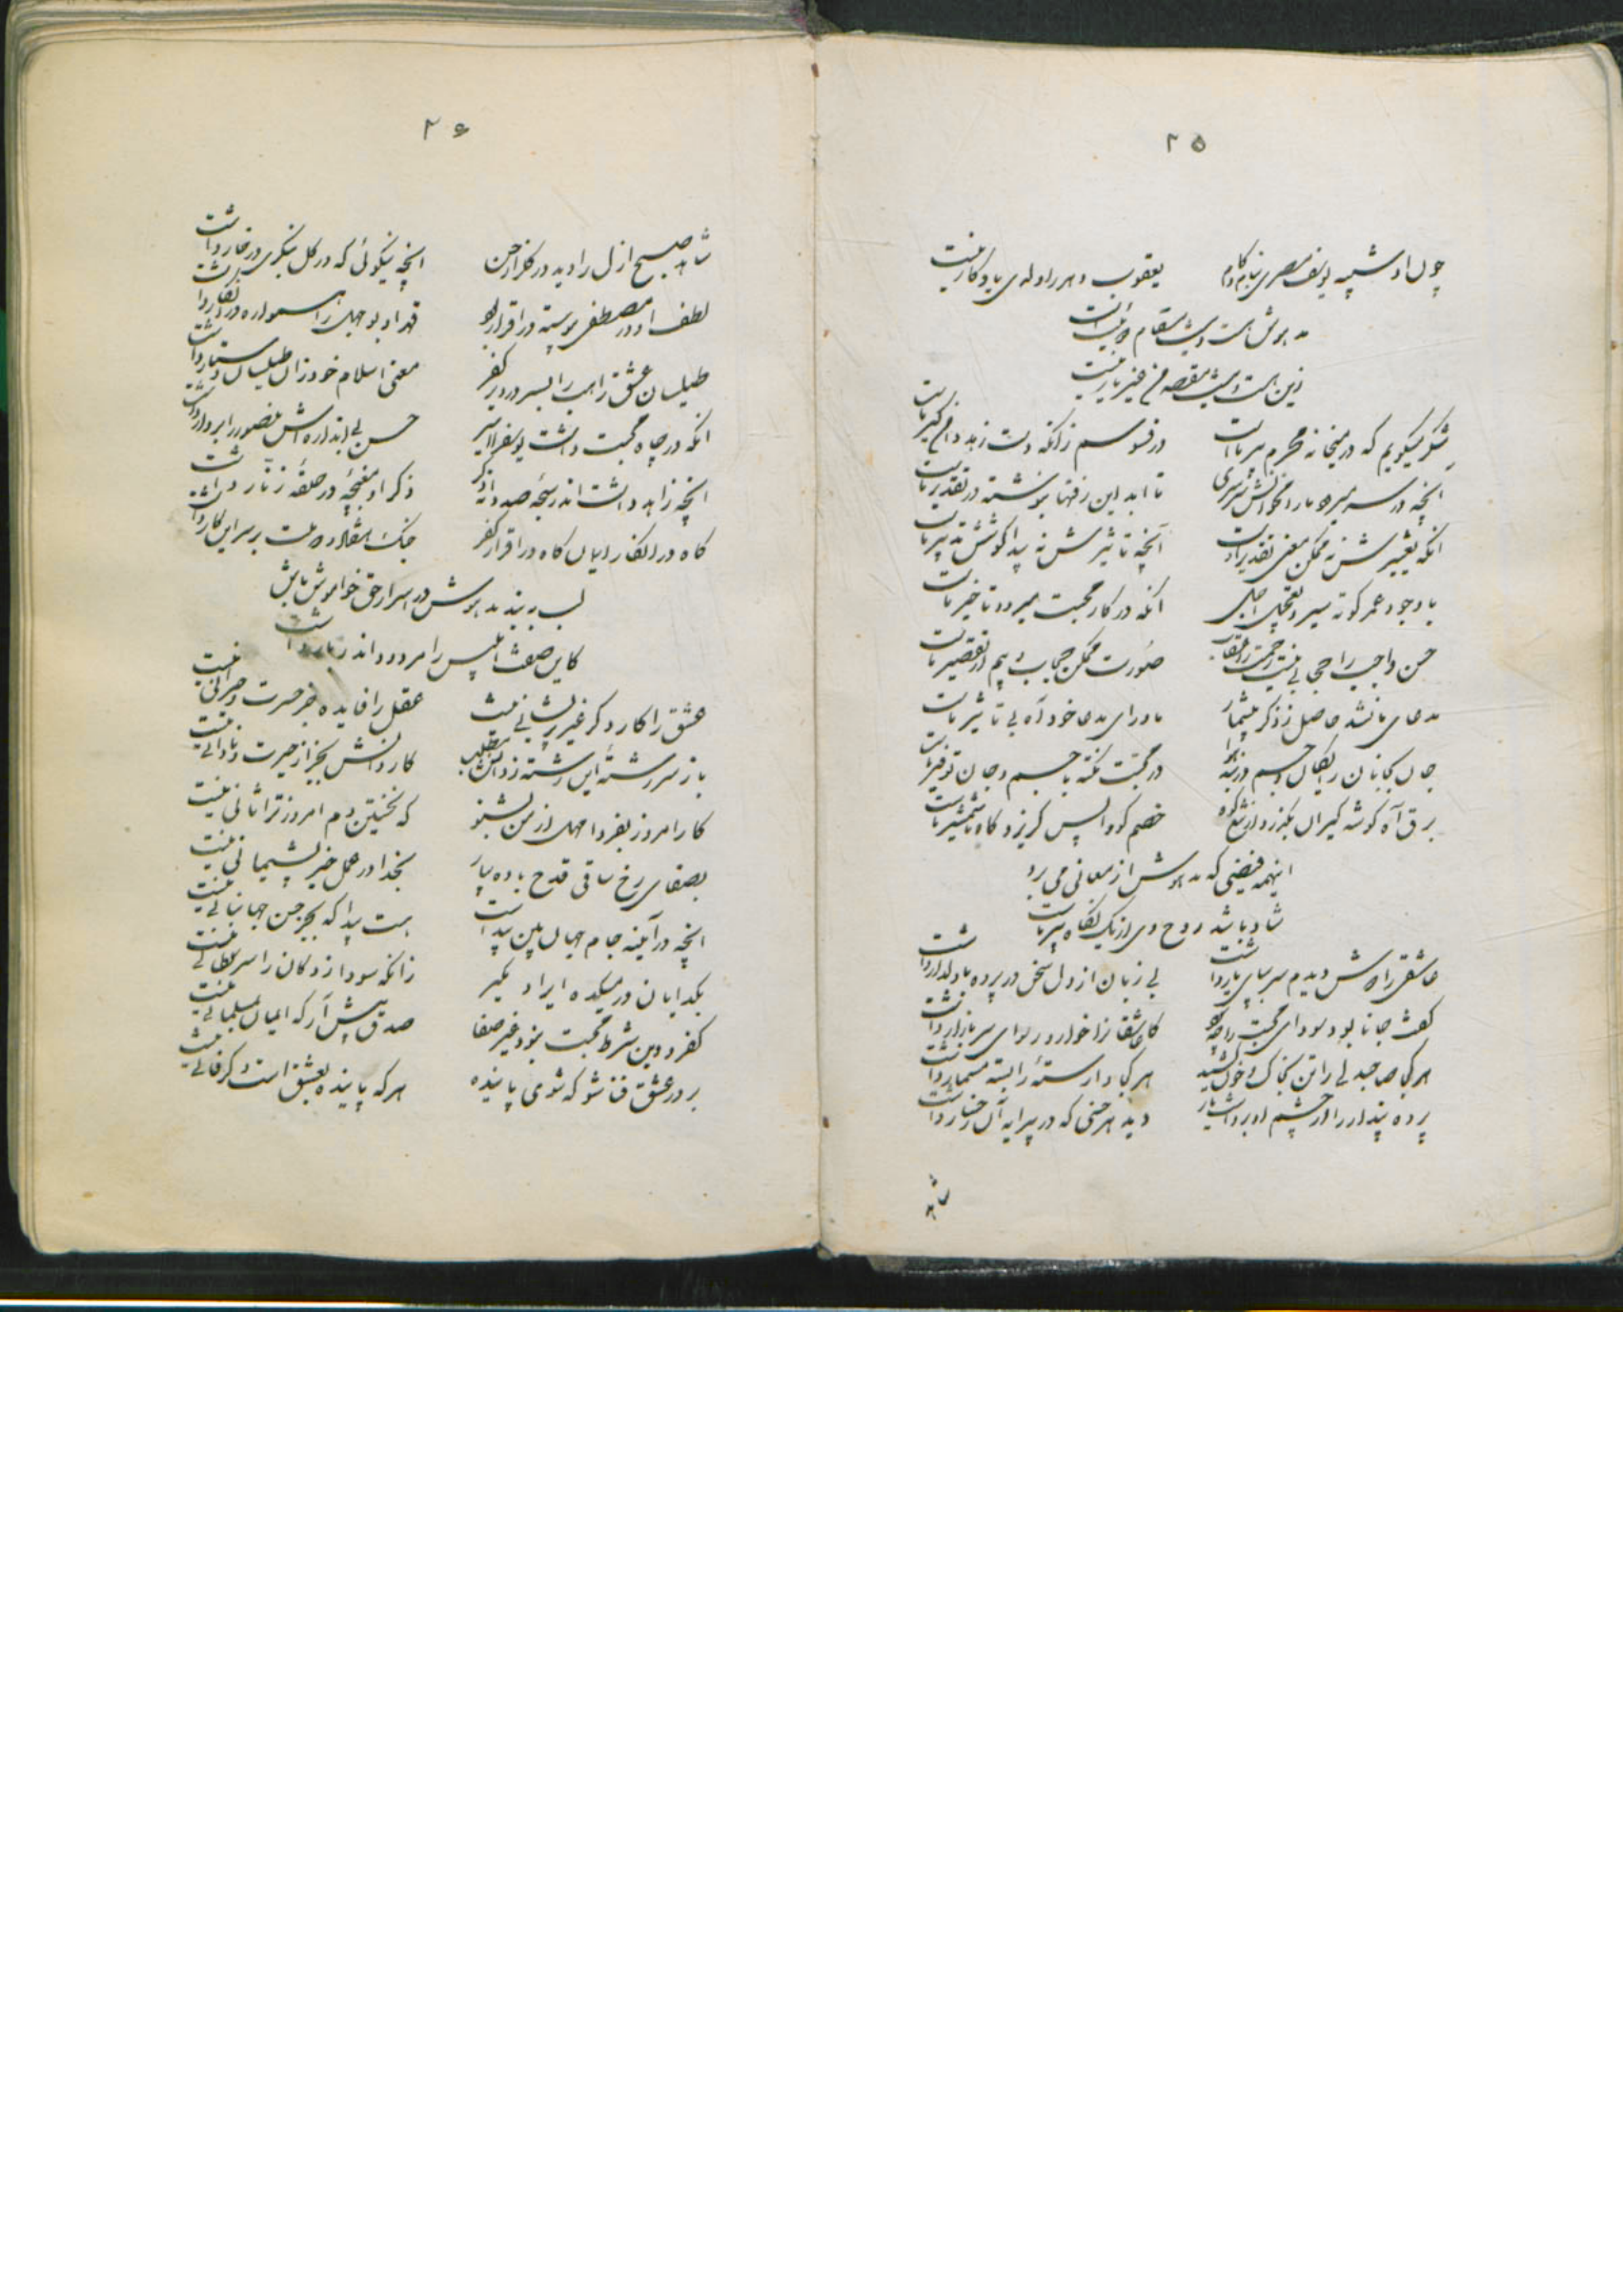 ۲۵
چون او شبیه یوسف مصری بنام کام
یعقوب دهر را دلدی یادگار نیست
مدهوش هست و نیست مقام
زین هست و نیست مقصد من غیر یار نیست
شکر میگویم که در میخانه محرم پیر ماست
در فسوسم زانکه دست زهد دامن گیر ماست
آنچه در سر میرود ما را نخوانش سرسری
تا ابد این رفتها بنوشته در تقدیر ماست
آنکه تغییرش نه ممکن معنی تقدیر اوست
آنچه تاثیرش نه پیدا کوشش تدبیر ماست
با وجود عمر کوته سیر و تعجیل اجل
آنکه در کار محبت میرود تاخیر ماست
حسن واجب را حجابی نیست
صورت ممکن حجاب و بیم از تقصیر ماست
مدعای ما نشد حاصل ز ذکر بیشمار
ماورای مدعا خود آه بی تاثیر ماست
جان بجانان رایگان و جسم در بند
در محبت نکته با جسم و جان توفیر ماست
برق آه گوشه گیران بگذرد از
خصم کو واپس گریزد کاه شمشیر ماست
اینهمه فیضی که مدهوش از معانی می برد
شاد باشد روح وی از یک نگاه پیر ماست
عاشقی را دوش دیدم سر بپای یار داشت
بی زبان از دل سخن در پرده با دلدار داشت
گفت جانا بود سودای محبت را چه
کاشقانرا خوار و رسوای سر بازار داشت
هر کجا صاحبدلی را تن بخاک و خون کشید
هر کجا وارستهٔ را بسته مسمار داشت
پرده پندار را از چشم او برداشت یار
دید هر حسنی که در پیرایه آن رخسار داشت
شاهد
۲۶
شاهد صبح ازل را دید در گلزار حسن
آنچه نیکوئی که در گل بنگری در خار داشت
لطف او در مصطفی پیوسته در اقرار بود
قهر او بوجهل را همواره در انکار داشت
طیلسان عشق راهب را بسر در دیر کفر
معنی اسلام خود زان طیلسان دستار داشت
آنکه در چاه محبت داشت یوسف را اسیر
حسن بی اندازه اش منصور را بر دار داشت
آنچه زاهد داشت اندر سبحه صد دانه ذکر
ذکر او مغبچه در حلقه زنار داشت
گاه در انکار ایمان گاه در اقرار کفر
جنگ هفتاد و دو ملت بر سر این کار داشت
لب به بند مدهوش در اسرار حق خاموش باش
کاین صفت ابلیس را مردود اندر نار داشت
عشق را کار دگر غیر پریشانی نیست
عقل را فایده جز حسرت و حیرانی نیست
باز سر رشتهٔ این رشته ز دانش مطلب
کار دانش بجز از حیرت و نادانی نیست
کار امروز بفردا مهل از من بشنو
که نخستین دم امروز ترا ثانی نیست
بصفای رخ ساقی قدح باده بیار
بخدا در عمل خیر پشیمانی نیست
آنچه در آینه جام جهان بین پیداست
هست پیدا که بجز حسن جهانبانی نیست
بگدایان در میکده ایراد مگیر
زانکه سودازدگان را سر سلطانی نیست
کفر و دین شرط محبت نبود غیر صفا
صدق پیش آر که ایمان بمسلمانی نیست
برِ در عشق فنا شو که شوی پاینده
هر که پاینده بعشق است دگر فانی نیست